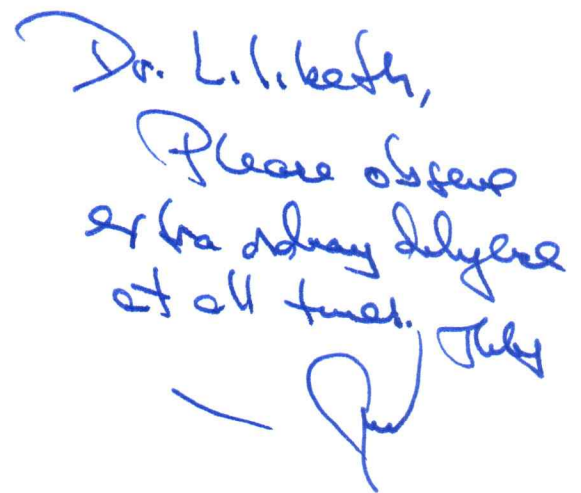 Dr. Lilibeth,
Please observe
extra ordinary diligence
at all times.